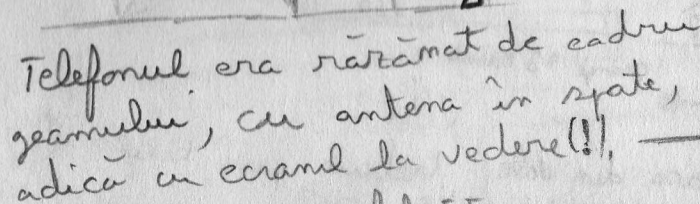 Telefonul era răzămat de cadrul
geamului, cu antena în spate,
adică cu ecranul la vedere(!).